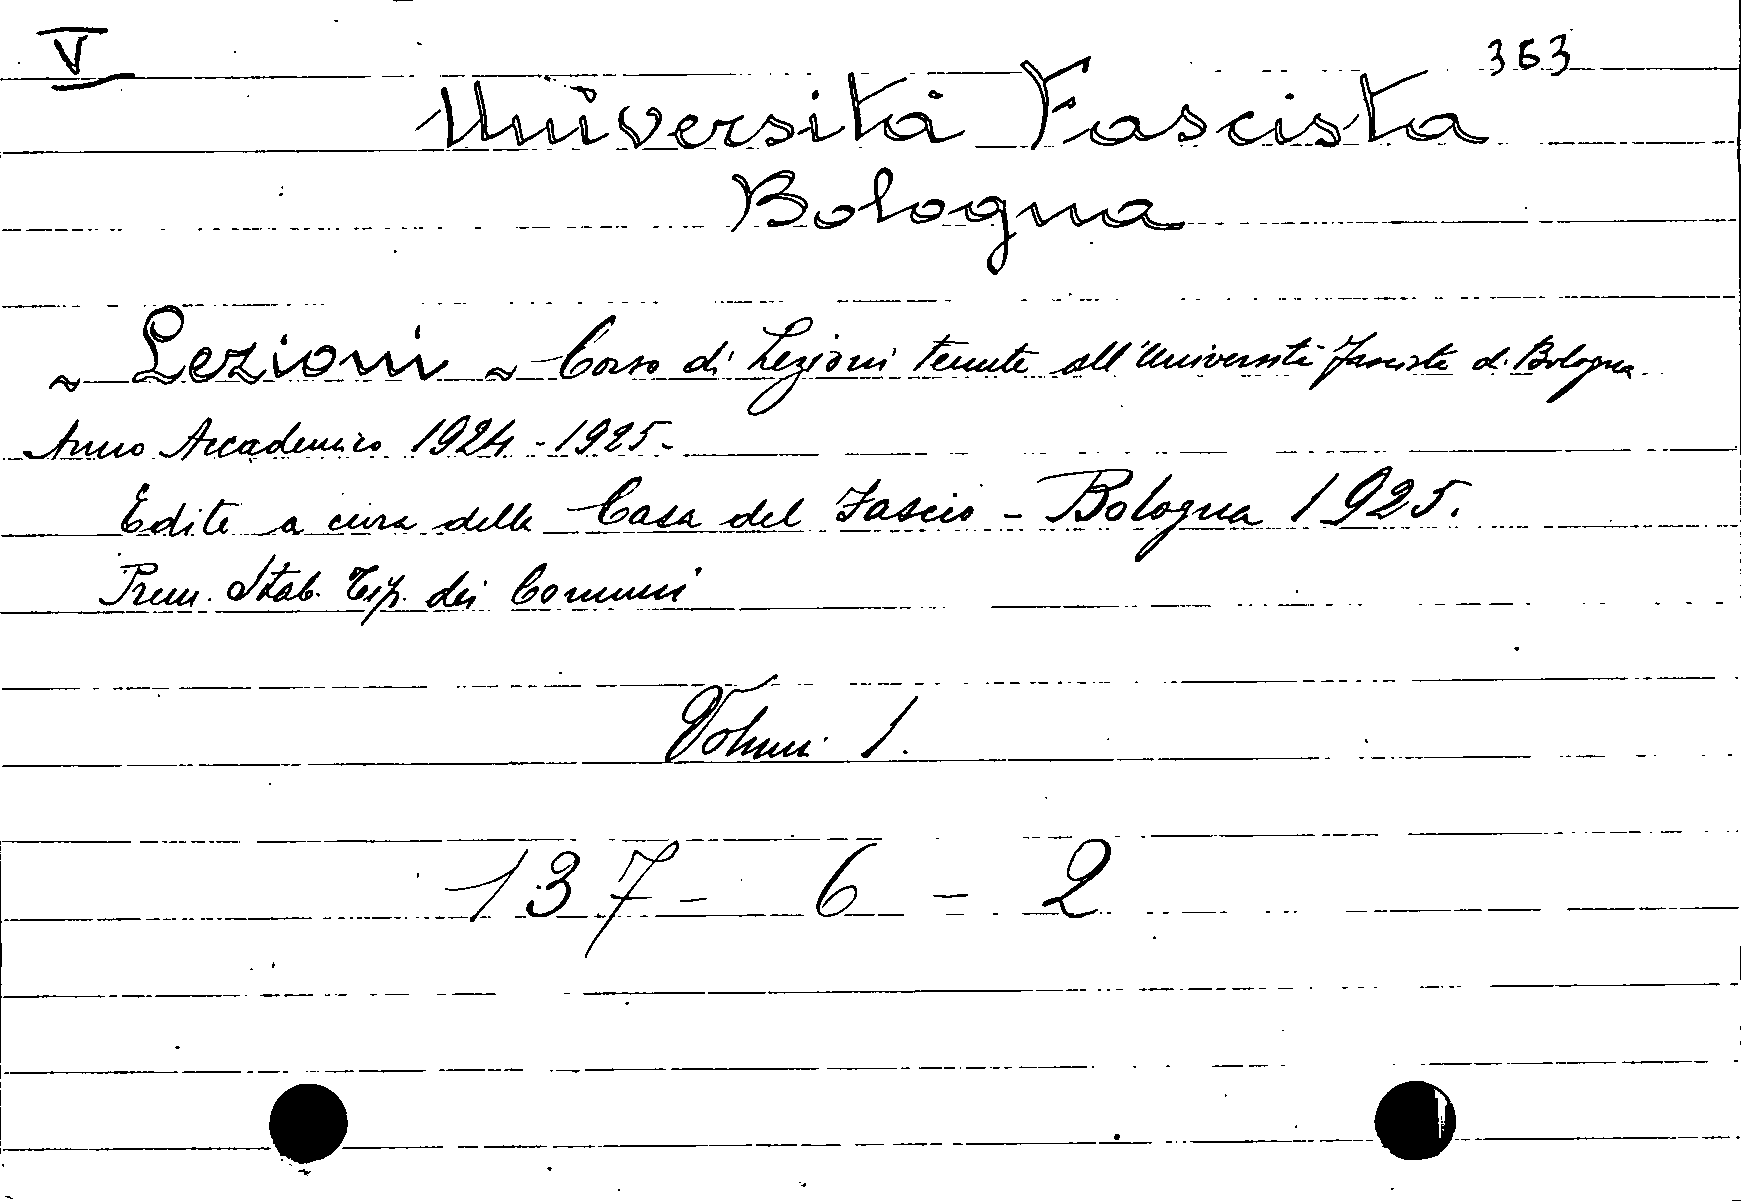 V 363
Università Fascista
Bologna
~ Lezioni ~ Corso di Lezioni tenute all'Università fascista di Bologna
Anno Accademico 1924-1925.
Edite a cura della Casa del Fascio - Bologna 1925.
Prem. Stab. Tip. dei Comuni
Volumi 1.
137 - 6 - 2